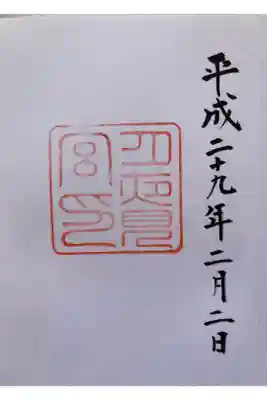 平成二十九年二月二日